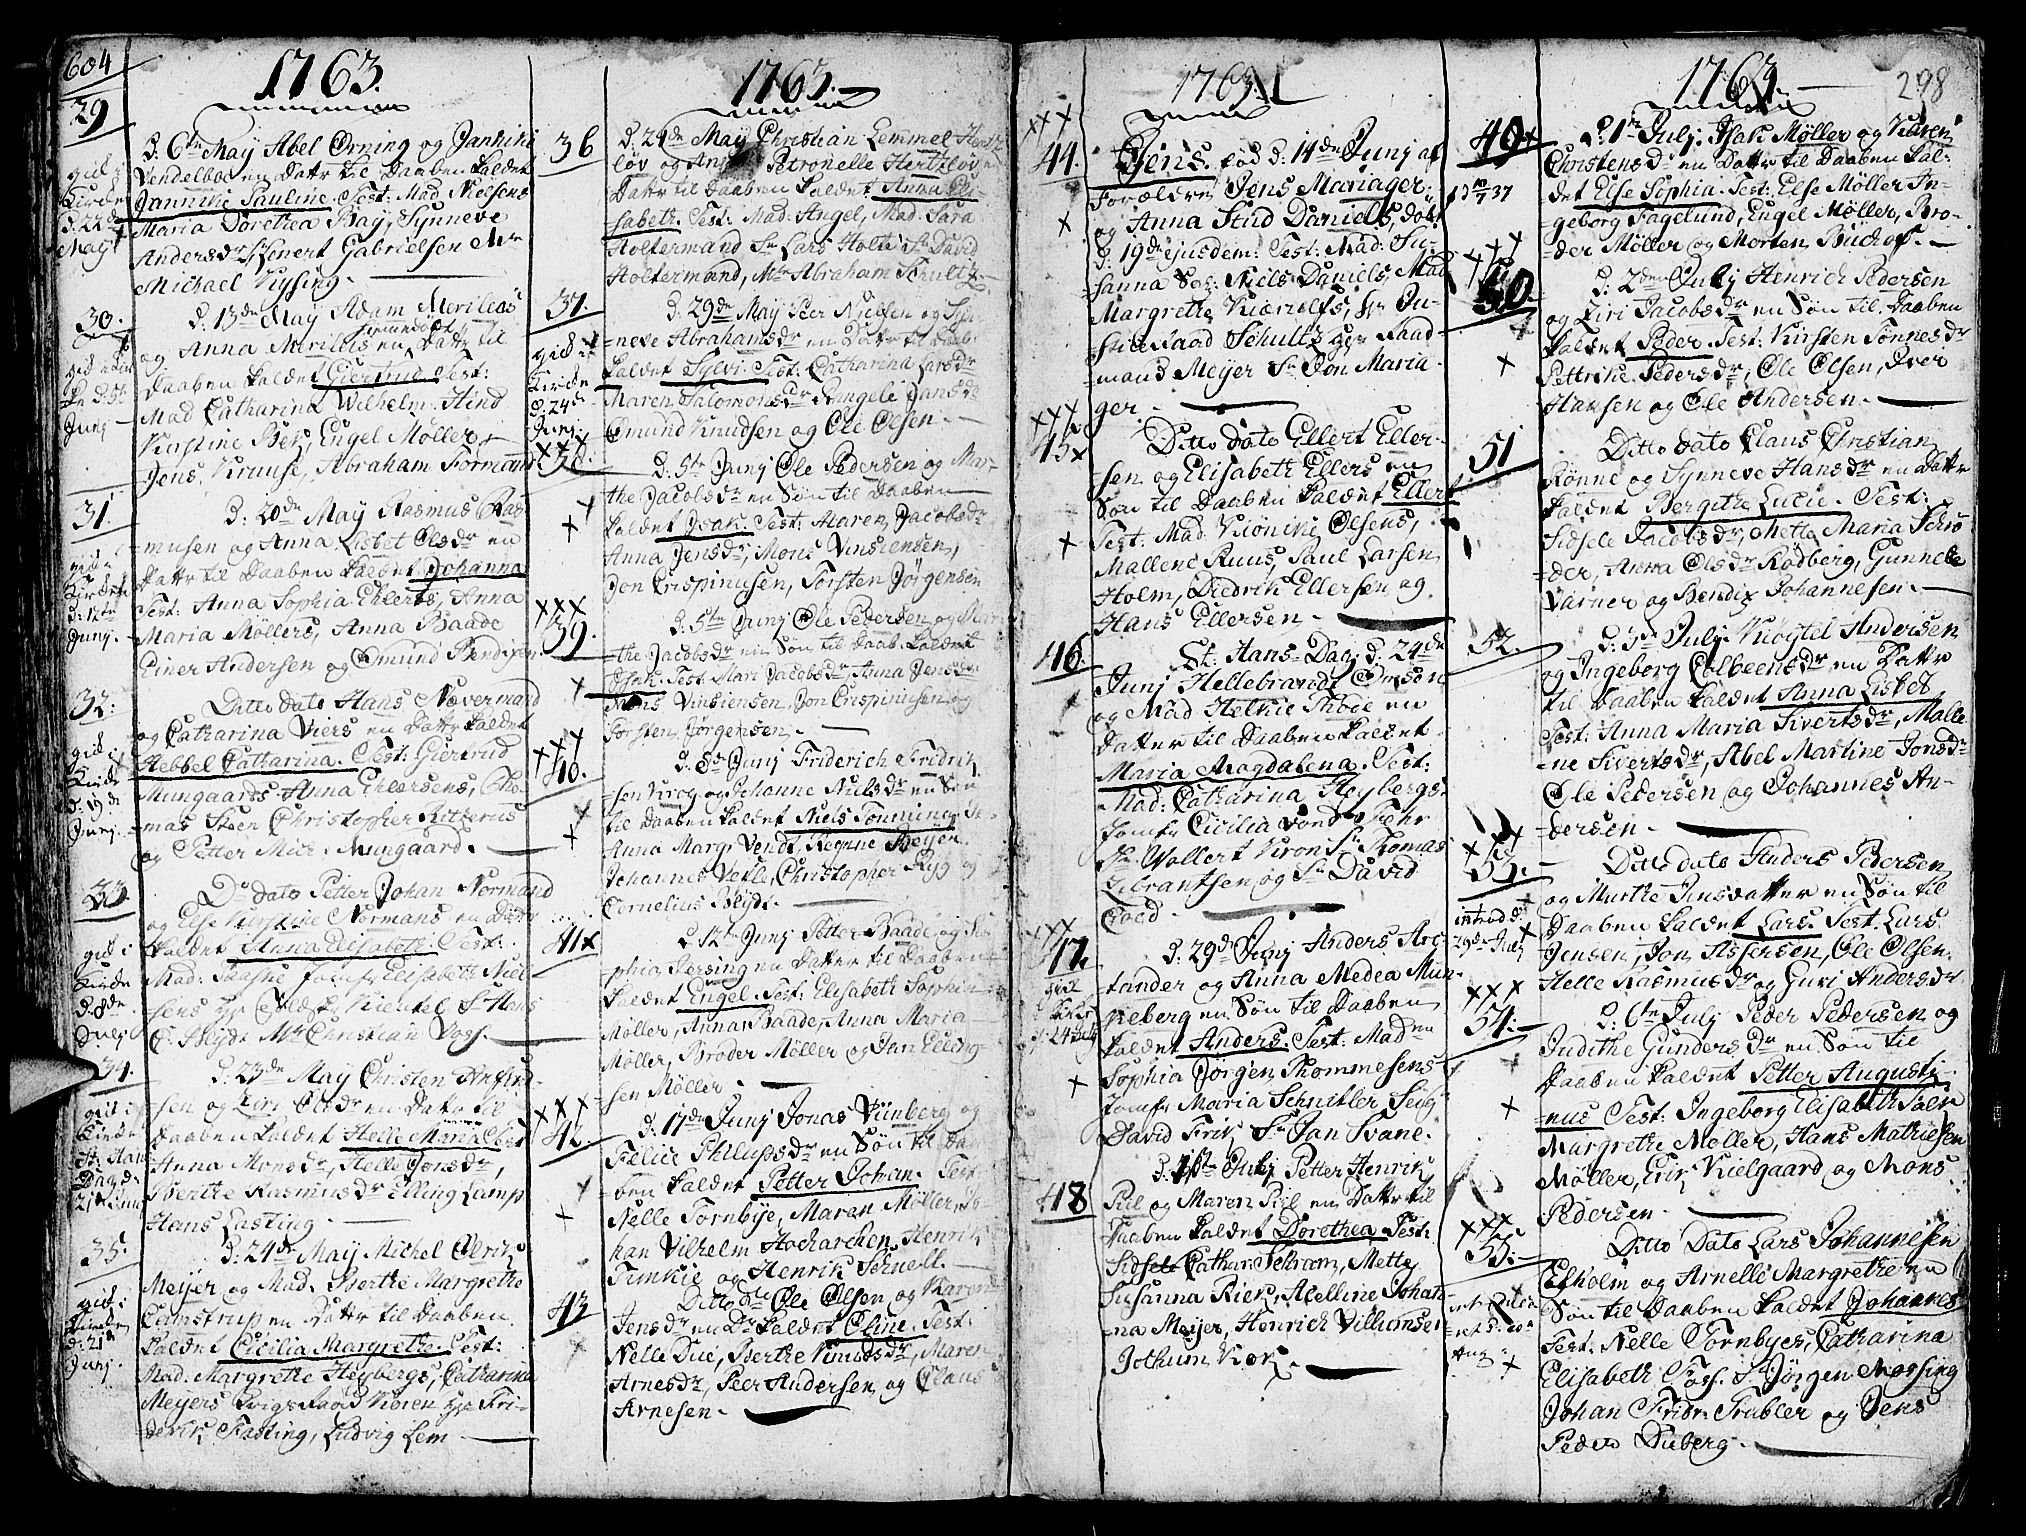 604
1763.
29
D. 6te May Abel Örning og Jannike
Vendelboe en Dattr til Daaben kaldet
Jannike Pauline. Test: Mad. Nielsens
Maria Dorothea Bag, Synneve
Andersdr, Evert Gabrielsen Mr
Michael Kysing.
gik i
Kirke
d. 22de
May
30.
D. 13de May Adam Merileus
og Anna Merileus en Dattr til
Daaben kaldet Giertrud Test:
Mad Catharina Wilhelm. Hind
Kirstine Bek, Engel Møller,
Jens Kruuse, Abraham Formann
Junj
31.
D. 20de May Rasmus Ras-
musen og Anna Lisbet Olsdr en
Dattr til Daaben kaldet Johanna
Test: Anna Sophia Ehlerts, Anna
Maria Møllers, Anna Baade
Einer Andersen og Omund Bendixen
gik i
Kirke
d. 12te
Junj.
32.
Ditto dato Hans Nævermand
og Catharina Viers en Dattr kaldet
Hebbel Catharina. Test: Giertrud
Mungaards Anna Ehlersens, Tho-
mas Steen Christopher Ritterus
og Petter Mich. Mungaard.
gik i
Kirke
d. 19de
Junj.
33.
Do dato Petter Johan Normand
og Else Kirstine Normans en Dattr
kaldet Anna Elisabeth. Test:
Mad: Jomfr Elisabeth Niel-
sens Sr Hans
C. Blijdt Mr Christian Voss.
gik i
Kirke
d. 8de
Julj
34.
D. 23de May Christen Ansin-
sen og Siri Olsdr en Dattr til
Daaben kaldet Helle Maria Test
Anna Monsdr, Helle Jonsdr,
Berthe Rasmusdr Elling Lamp
Hans Lasting.
gik i
Kirke
St. Hans
Dag d.
35.
D. 24de May Michel Ulrik
Meijer og Mad. Berthe Margrethe
Lemstrup en Dattr til Daaben
kaldet Cicilia Margrethe Test:
Mad. Margrethe Heybergs, Catharina
Meyers Krigs Raad Kören hr Fri-
derik Fasting, Ludvig Lem
gik i
Kirken
d. 21de
Junj.
1763.
36
D. 24de May Christian Lemmel Hertz-
löv og Anne Petronelle Hertzlöv en
Dattr til Daaben kaldet Anna Eli-
sabeth. Test: Mad. Angel, Mad. Sara
Holtermand Sr Lars Holte Sr David
Holtermand, Mr Abraham Schultz.
37.
D. 29de May Peer Nielsen og Syn-
neve Abrahamsdr en Dattr til Daab
kaldet Sylvi. Test: Catharina Larsdr
Maren Salomonsdr Engele Jansdr
Omund Knudsen og Ole Olsen.
gik i
Kirke
d. 24de
Junj.
38.
D. 5te Junj Ole Pedersen og Mar-
the Jacobsdr en Søn til Daaben
kaldet Isak. Test: Maren Jacobsdr
Anna Jensdr, Mons Vinsiensen,
Jon Crispinusen, Torsten Jörgensen
39.
D. 5te Junj Ole Pedersen og Mar-
the Jacobsdr en Søn til Daab. kaldet
Isak. Test Mari Jacobsdr, Anna Jensdr
Mons Vinsiensen Jon Crispinusen og
Torsten Jörgensen.
40.
D. 8de Junj Friderich Fridrik-
sen Krog og Johanne Nielsdr en Søn
til Daaben kaldet Niels Tonning Te
Anna Margr Vendt, Regine Beijer
Johannes Vetle, Christopher Rijg og
Cornelius Blijdt.
41
D. 12te Junj Petter Baade og So-
phia Persing en Datter til Daaben
kaldet Engel. Test: Elisabeth Sophia
Møller, Anna Baade, Anna Maria
Møller, Broder Møller og Jan Elling-
sen Møller
42.
D. 17de Junj Jonas Vünberg og
Felice Philipsdr en Søn til Daa-
ben kaldet Petter Johan. Test:
Nelle Tornbye, Maren Møller, Jo-
han Vilhelm Hocharchen, Henrik
Timkie og Henrik Schnell.
43
Ditto dto Ole Olsen og Karen
Jensdr en Dr kaldet Oline. Test:
Nelle Due, Berthe Knudsdr, Maren
Arnesdr, Peer Andersen og Claus
Arnesen.
1763.
44.
Jens. fød d: 14de Junj af
Forældre Jens Mariager
og Anna Stud Daniels, døbt
d. 19de ejusdem: Test: Mad: Su-
sanna Sal. Niels Daniels, Mad
Margrethe Kierulfs, hr Ju-
stitz Raad Schultz hr Raad-
mand Meijer Sr Jon Maria-
ger.
45
Ditto dato Ellert Eller-
sen og Elisabeth Ellers en
Søn til Daaben kaldet Ellert
Test: Mad. Kiönike Olsens,
Mallene Ruus, Paul Larsen
Holm, Diedrik Ellersen og
Hans Ellersen.
46.
St. Hans Dag d. 24de
Junj Hellebrandt Omsen
og Mad Helkie Tiböe en
Datter til Daaben kaldet
Maria Magdalena. Test:
Mad: Catharina Heybergs
Jomfr Cicilia vond Fehr
Sr Wollert Kron Sr Thomas
Zibrantsen og Sr David
Coed.
47.
D. 29de Junj Anders Arc-
tander og Anna Medea Mun-
keberg en Søn til Daaben
kaldet Anders. Test. Maden
Sophia Jörgen Thommesens
Jomfr Maria Schnitler Seigr
David Frik Sr Jan Svane.
gik
d. 24 Julj
48
D. 1ste Julj Petter Henrik
Piil og Maren Piil en Dattr til
Daaben kaldet Dorethea. Test:
Sidsele Cathar: Schram, Mette
Susanna Riek, Abelline Johan-
na Meijer, Henrich Villumsen
Jothum Kok.
1763
298
49
D. 1te Julj Isak Møller og Karen
Christensdr en Dattr til Daaben kal-
det Else Sophia. Test: Else Møller In-
geborg Fagelund, Engel Møller, Bro-
der Møller og Morten Buchof.
50.
D. 2den Julj Henrich Pedersen
og Siri Jacobsdr en Søn til Daaben
kaldet Peder. Test: Kirsten Tönnesdr
Pettrike Pedersdr, Ole Olsen, Iver
Hansen og Ole Andersen.
51
Ditto dato Claus Christian
Rönne og Synneve Hansdr en Dattr
kaldet Bergithe Lucie. Test:
Sidsele Jacobsdr, Mette Maria Schrö-
der, Anna Olsdr Rodberg, Gunnele
Varner og Bendix Johannesen.
52.
D. 3de Julj Knogtel Andersen
og Ingeborg Colbeensdr en Dattr
til Daaben kaldet Anna Lisbet
Test: Anna Maria Sivertsdr, Malle-
ne Sivertsdr, Abel Martine Jonsdr
Ole Pedersen og Johannes An-
dersen.
53.
Ditto dato Anders Pedersen
og Marthe Jensdatter en Søn til
Daaben kaldet Lars. Test. Lars
Jensen, Jon Assersen, Ole Olsen
Helle Rasmusdr og Guri Andersdr
introd d.
29de Julj
54.
D. 6te Julj Peder Pedersen og
Judithe Gundersdr en Søn til
Daaben kaldet Petter Augusti-
nus Test: Ingeborg Elisabeth Falk
Margrethe Møller, Hans Mathiesen
Møller, Erik Kielgaard og Mons
Pedersen.
55.
Ditto Dato Lars Johannesen
Elholm og Arnelle Margrethe en
Søn til Daaben kaldet Johannes
Test: Nelle Tornbyes, Catharina
Elisabeth Foss. Sr Jörgen Mossing
Johan Fridr. Trubler og Jens
Peder Duberg.